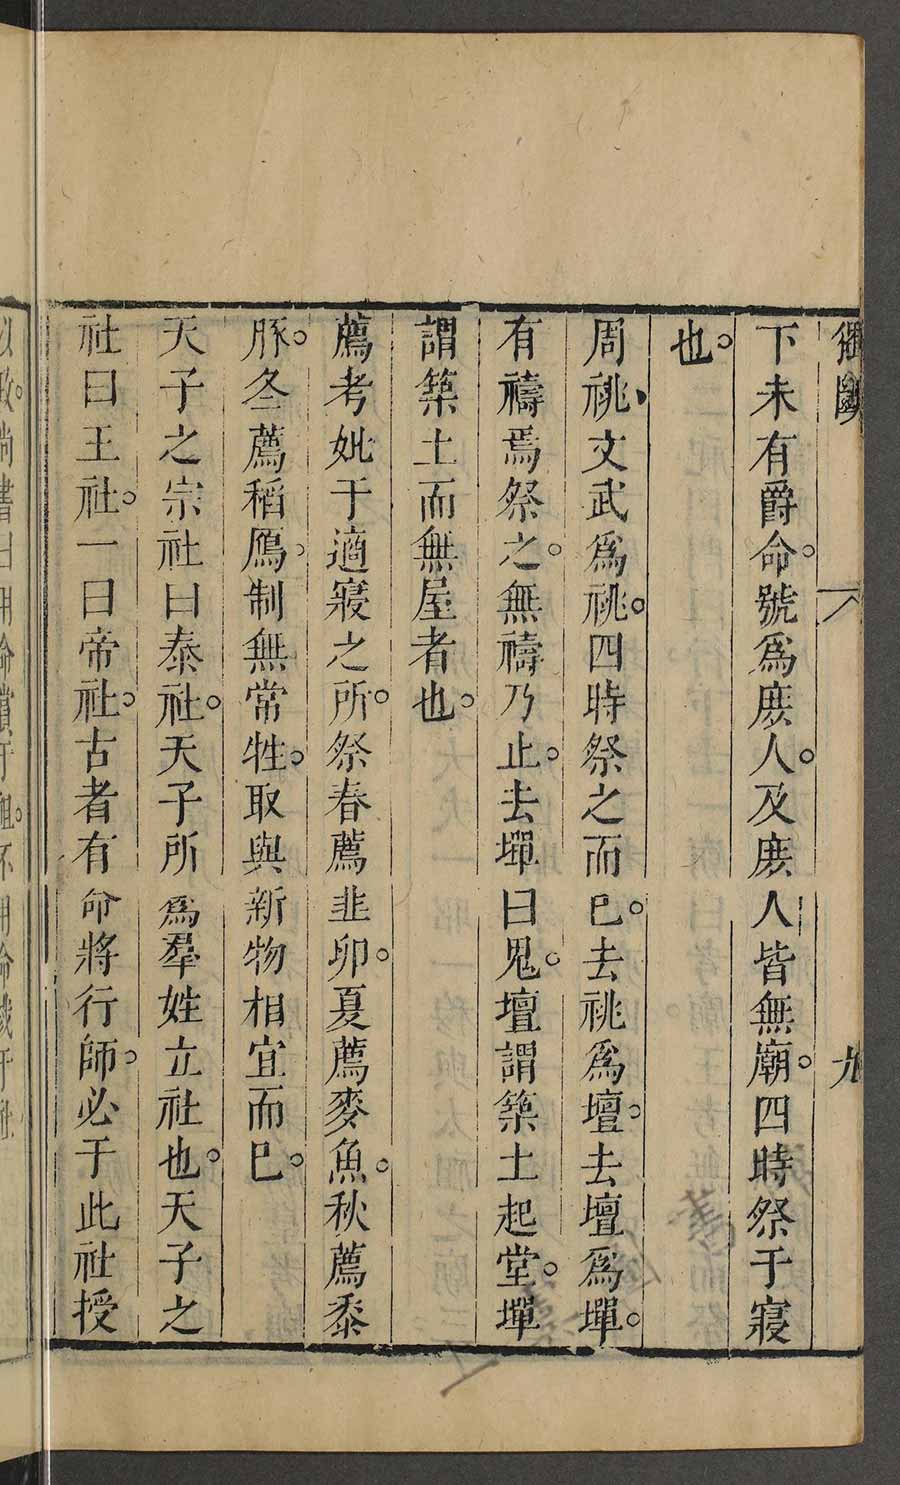 獨斷
九
下未有爵命。號爲庶人。及庶人皆無廟。四時祭于寢
也。
周祧、文武爲祧。四時祭之而已。去祧爲壇。去壇爲墠。
有禱焉祭之。無禱乃止。去墠曰鬼。壇謂築土起堂。墠
謂築土而無屋者也。
薦考妣于適寢之所。祭春薦韭卵。夏薦麥魚。秋薦黍
豚。冬薦稻鴈。制無常牲。取與新物相宜而已。
天子之宗社曰泰社。天子所爲羣姓立社也。天子之
社曰王社。一曰帝社。古者有命將行師。必于此社授
以政。尚書曰用命賞于祖。不用命戮于社